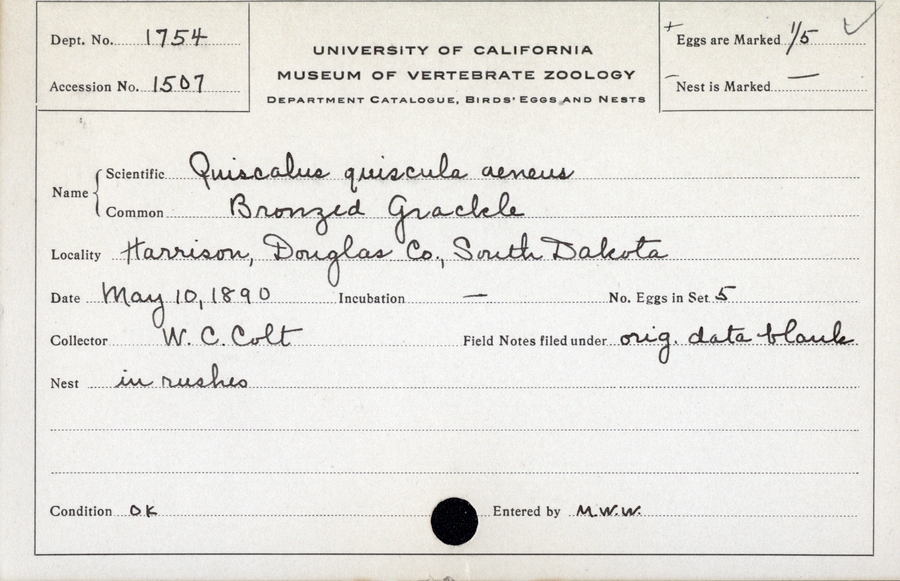 Dept. No. 1754
Accession No. 1507
UNIVERSITY OF CALIFORNIA
MUSEUM OF VERTEBRATE ZOOLOGY
DEPARTMENT CATALOGUE, BIRDS' EGGS AND NESTS
+ Eggs are Marked 1/5 ✓
– Nest is Marked —
Name { Scientific Quiscalus quiscula aeneus
Common Bronzed Grackle
Locality Harrison, Douglas Co., South Dakota
Date May 10, 1890 Incubation — No. Eggs in Set 5
Collector W. C. Colt Field Notes filed under orig. data blank
Nest in rushes
Condition OK Entered by M.W.W.